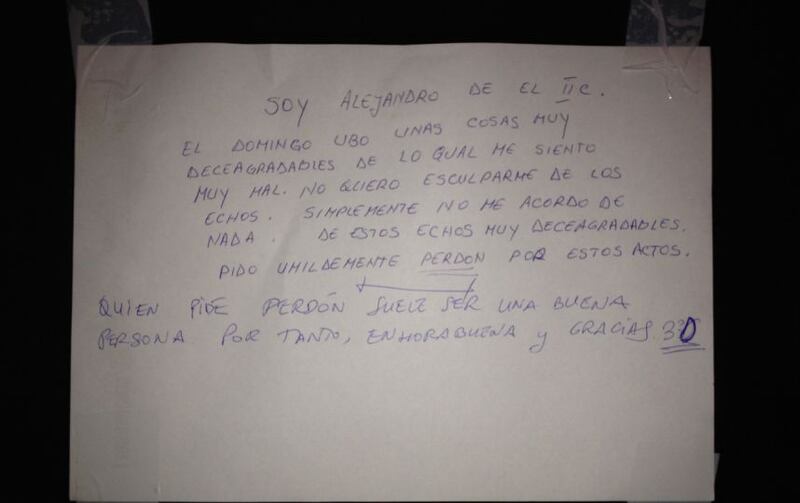 SOY ALEJANDRO DE EL II C.
EL DOMINGO UBO UNAS COSAS MUY
DECEAGRADABLES DE LO QUAL ME SIENTO
MUY MAL. NO QUIERO ESCULPARME DE LOS
ECHOS. SIMPLEMENTE NO ME ACORDO DE
NADA. DE ESTOS ECHOS MUY DECEAGRADABLES.
PIDO UMILDEMENTE PERDON POR ESTOS ACTOS.
QUIEN PIDE PERDÓN SUELE SER UNA BUENA
PERSONA. POR TANTO, ENHORABUENA Y GRACIAS.